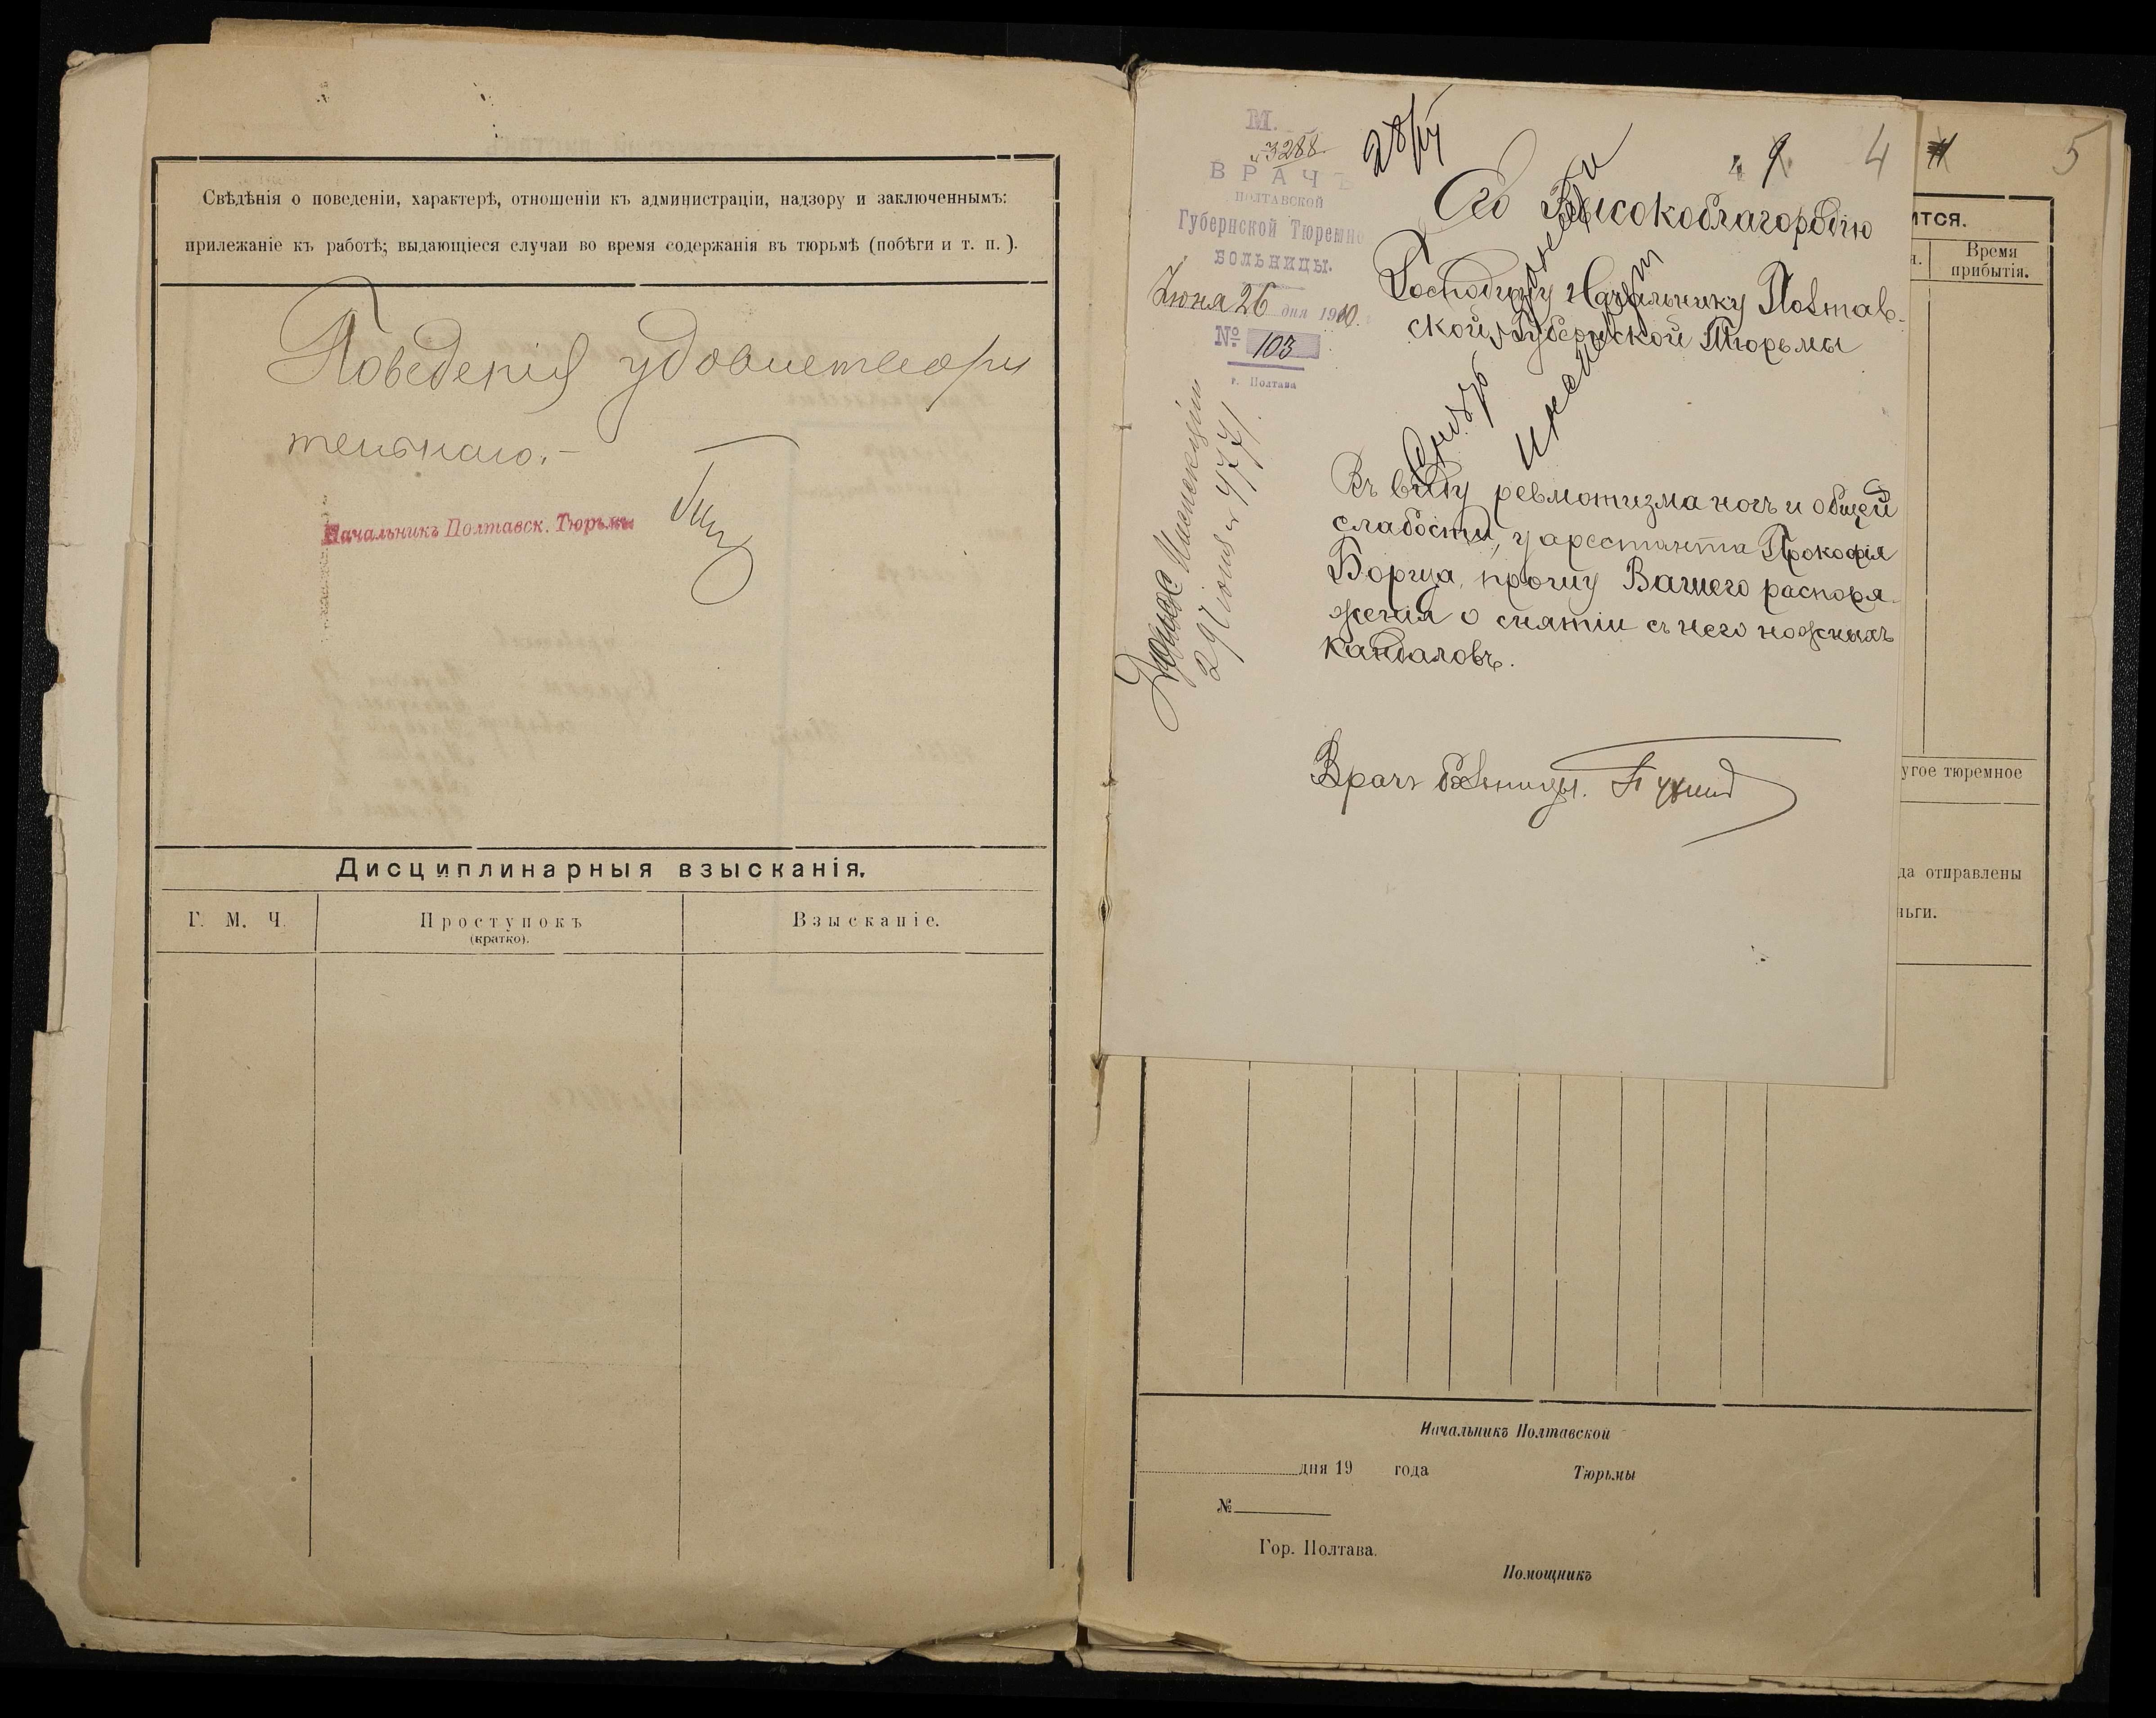 Свѣдѣнія о поведеніи, характерѣ, отношеніи къ администраціи, надзору и заключеннымъ:
прилежаніе къ работѣ; выдающіеся случаи во время содержанія въ тюрьмѣ (побѣги и т. п.).
Поведенія удовлетвори
тельнаго.-
Начальникъ Полтавск. Тюрьмы
Дисциплинарныя взысканія.
Г. М. Ч.
Проступокъ
(кратко).
Взысканіе.
М.
3288.
ВРАЧЪ
ПОЛТАВСКОЙ
Губернской Тюремно
БОЛЬНИЦЫ.
Іюня 26 дня 1910.
№ 103
г. Полтава
28/VI
9
4
Его Высокоблагородію
Господину Начальнику Полтав-
ской Губернской Тюрьмы
Въ виду ревмотизма ногъ и общей
слабости, у арестанта Прокофія
Борца, прошу Вашего распоря-
женія о снятіи съ него ножныхъ
кандаловъ.
Врачъ больницы.
29 іюня № 4771.
5
ится.
Время
прибытія.
угое тюремное
да отправлены
ньги.
Начальникъ Полтавской
дня 19 года
Тюрьмы
№
Гор. Полтава.
Помощникъ